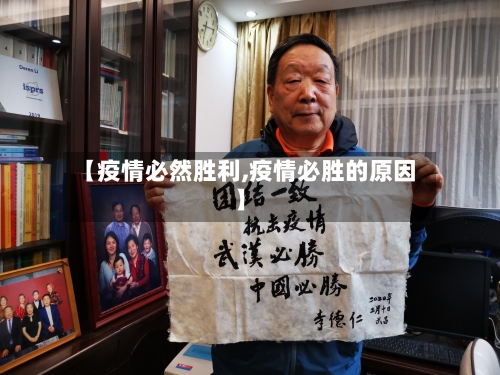 Deren Li
isprs
【疫情必然胜利,疫情必胜的原因
】
团结一致
抗击疫情
武漢必勝
中國必勝
2020年
2月10日
李德仁
武昌